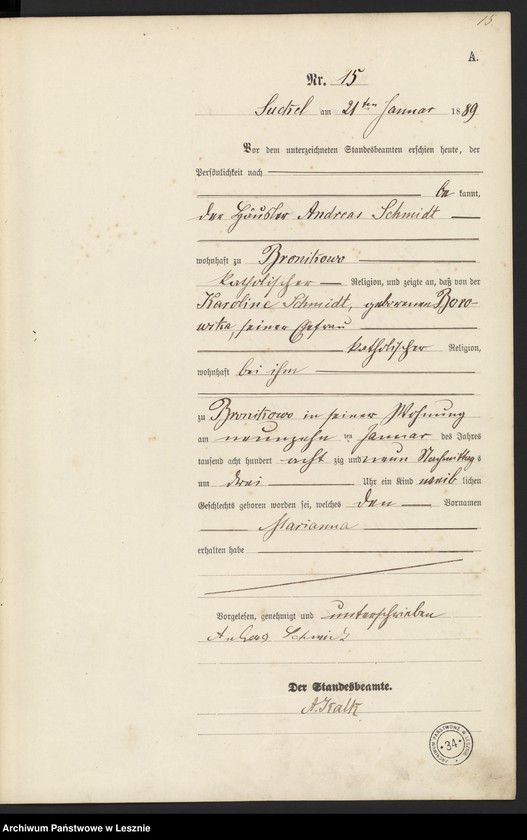 15
A.
Nr. 15
am 21ten Januar 1889
Vor dem unterzeichneten Standesbeamten erschien heute, der
Persönlichkeit nach
be kannt,
der Häusler Andreas Schmidt
wohnhaft zu Bronikowo
katholischer Religion, und zeigte an, daß von der
Karoline Schmidt, geborenen Boro-
wska, seiner Ehefrau
katholischer Religion,
wohnhaft bei ihm
zu Bronikowo in seiner Wohnung
am neunzehn ten Januar des Jahres
tausend acht hundert acht zig und neun Nachmittags
um drei Uhr ein Kind weib lichen
Geschlechts geboren worden sei, welches den Vornamen
Marianna
erhalten habe
Vorgelesen, genehmigt und unterschrieben
Der Standesbeamte.
ARCHIWUM PAŃSTWOWE W LESZNIE
34
Archiwum Państwowe w Lesznie